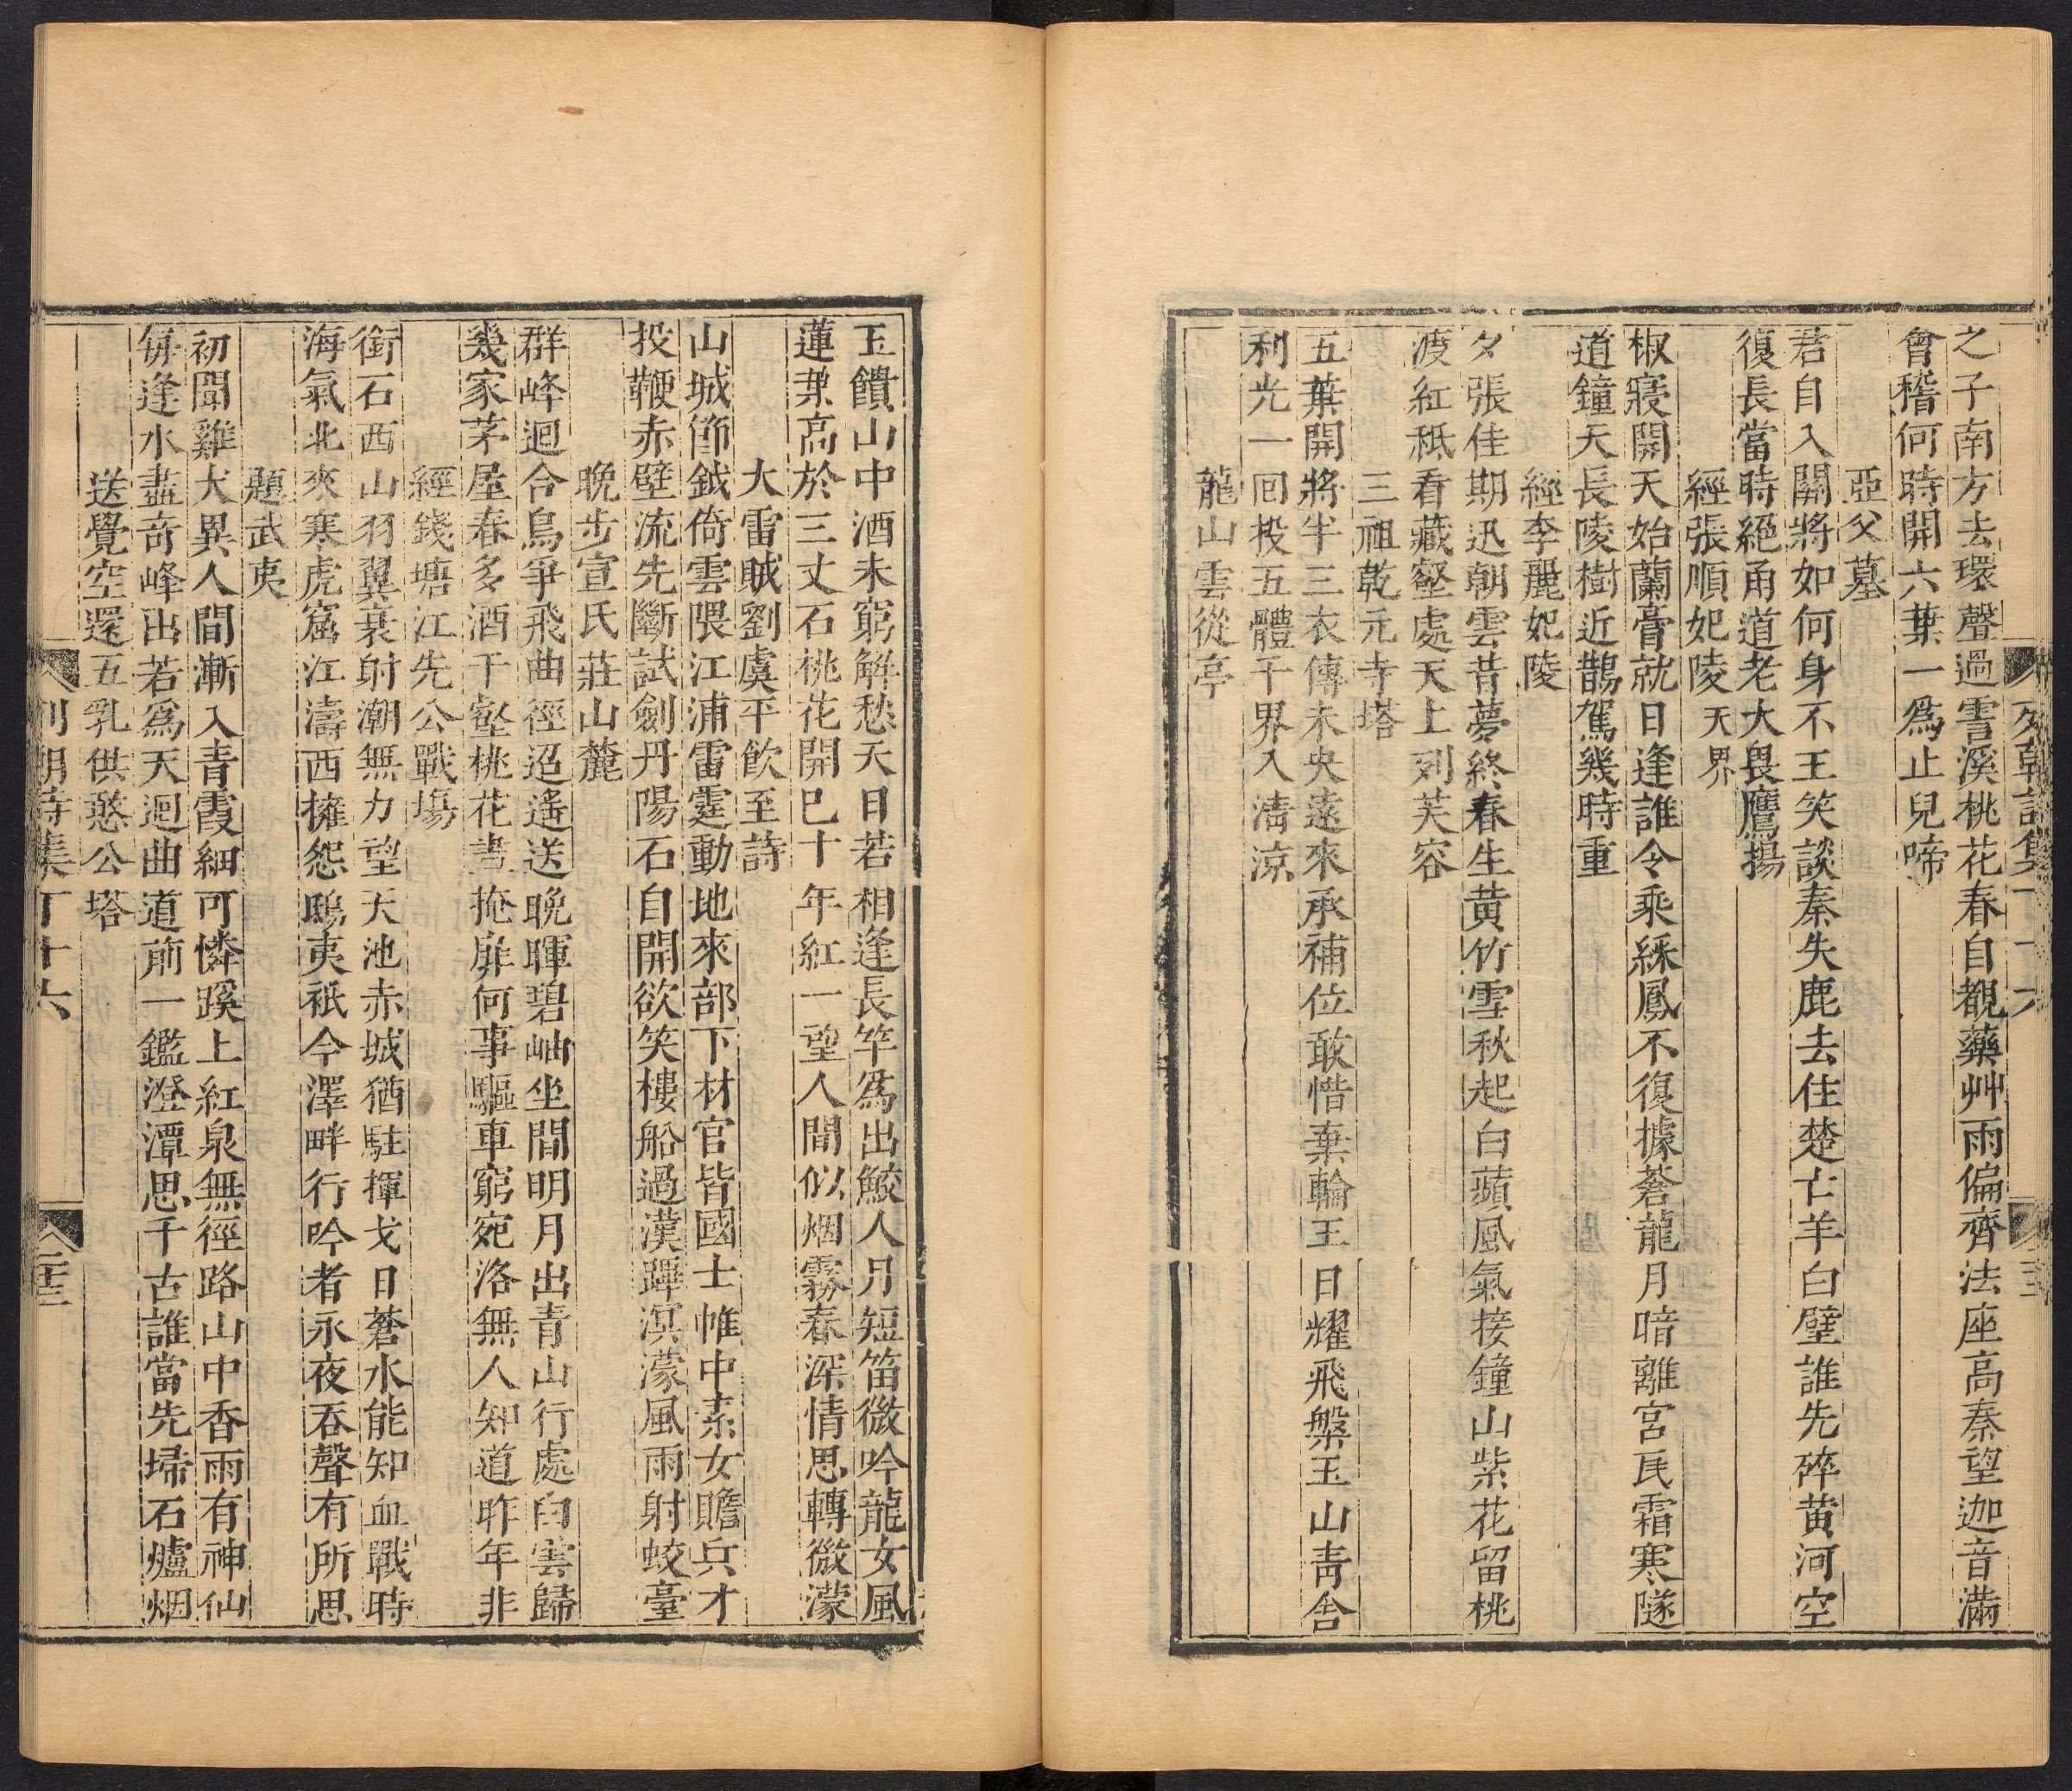 之子南方去環聲過霅溪桃花春自覩藥艸雨偏齊法座高秦望迦音滿
會稽何時開六葉一爲止兒啼
亞父墓
君自入關將如何身不王笑談秦失鹿去住楚亡羊白璧誰先碎黄河空
復長當時絕甬道老大畏鷹揚
經張順妃陵天界
椒寢開天始蘭膏就日逢誰令乘綵鳳不復據蒼龍月暗離宮艮霜寒隧
道鐘天長陵樹近鵲駕幾時重
經李麗妃陵
夕張佳期迅朝雲昔夢終春生黄竹雪秋起白蘋風氣接鐘山紫花留桃
渡紅秖看藏壑處天上列芙容
三祖乾元寺塔
五葉開將半三衣傳未央遠來承補位敢惜棄輪王日耀飛槃玉山靑舍
利光一回投五體千界入淸涼
龍山雲從亭
玉饋山中酒未窮解愁天日若相逢長竿爲出鮫人月短笛微吟龍女風
蓮葉高於三丈石桃花開已十年紅一望人間似烟霧春深情思轉微濛
大雷贼劉虞平飲至詩
山城節鉞倚雲隈江浦雷霆動地來部下材官皆國士帷中素女贍兵才
投鞭赤壁流先斷試劍丹陽石自開欲笑樓船過漢蹕溟濛風雨射蛟臺
晩步宣氏莊山麓
群峰迴合鳥爭飛曲徑迢遙送晩暉碧岫坐間明月出青山行處白雲歸
幾家茅屋春多酒千壑桃花晝掩扉何事驅車窮宛洛無人知道昨年非
經錢塘江先公戰塲
銜石西山羽翼衰射潮無力望天池赤城猶駐揮戈日蒼水能知血戰時
海氣北來寒虎窟江濤西擁怨鴟夷祇今澤畔行吟者永夜吞聲有所思
題武夷
初聞雞犬異人間漸入青霞細可憐蹊上紅泉無徑路山中香雨有神仙
每逢水盡竒峰出若爲天迴曲道前一鑑澄潭思千古誰當先埽石爐烟
送覺空還五乳供憨公塔
列朝詩集丁十六